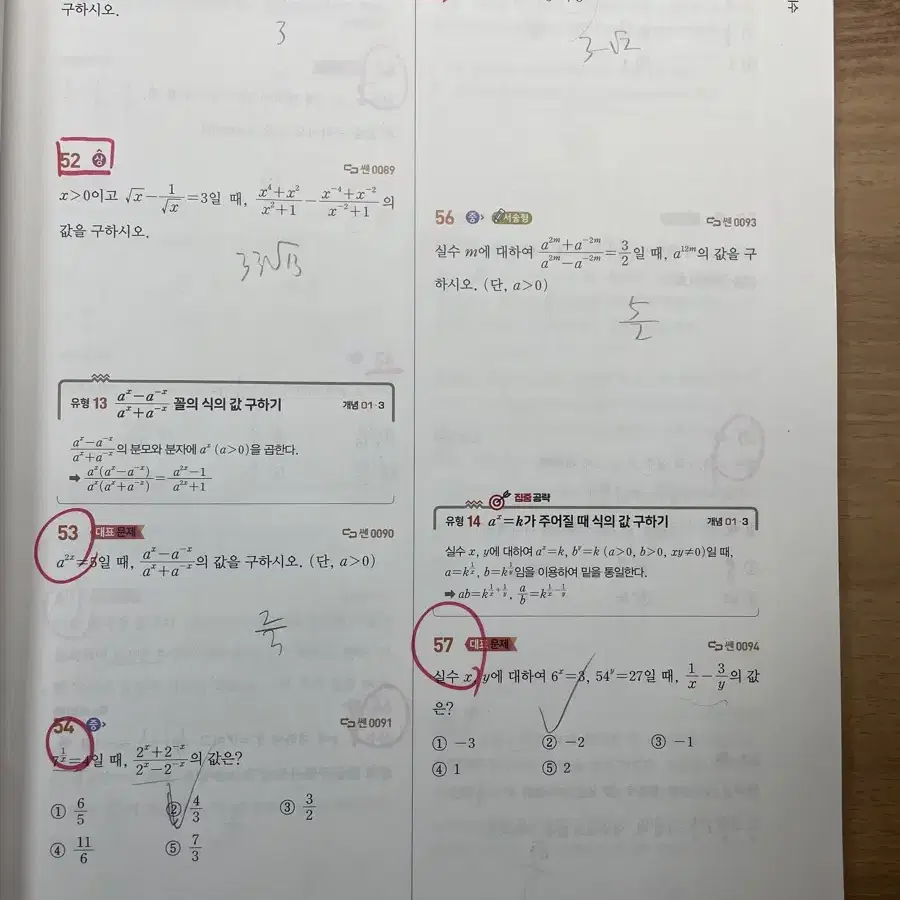 구하시오.
3
52 상
쎈 0089
x>0이고 √x − 1/√x = 3일 때, (x⁴+x²)/(x²+1) − (x⁻⁴+x⁻²)/(x⁻²+1)의
값을 구하시오.
33√13
유형 13 (aˣ−a⁻ˣ)/(aˣ+a⁻ˣ) 꼴의 식의 값 구하기
개념 01-3
(aˣ−a⁻ˣ)/(aˣ+a⁻ˣ)의 분모와 분자에 aˣ (a>0)을 곱한다.
➡ aˣ(aˣ−a⁻ˣ)/aˣ(aˣ+a⁻ˣ) = (a²ˣ−1)/(a²ˣ+1)
53 대표 문제
쎈 0090
a²ˣ=5일 때, (aˣ−a⁻ˣ)/(aˣ+a⁻ˣ)의 값을 구하시오. (단, a>0)
2/3
54 중
쎈 0091
7^(1/x)=4일 때, (2ˣ+2⁻ˣ)/(2ˣ−2⁻ˣ)의 값은?
① 6/5 ② 4/3 ③ 3/2
④ 11/6 ⑤ 7/3
3√2
56 중 서술형
쎈 0093
실수 m에 대하여 (a²ᵐ+a⁻²ᵐ)/(a²ᵐ−a⁻²ᵐ)=3/2일 때, a¹²ᵐ의 값을 구
하시오. (단, a>0)
5/2
집중 공략
유형 14 aˣ=k가 주어질 때 식의 값 구하기
개념 01-3
실수 x, y에 대하여 aˣ=k, bʸ=k (a>0, b>0, xy≠0)일 때,
a=k^(1/x), b=k^(1/y)임을 이용하여 밑을 통일한다.
➡ ab=k^(1/x+1/y), a/b=k^(1/x−1/y)
57 대표 문제
쎈 0094
실수 x, y에 대하여 6ˣ=3, 54ʸ=27일 때, 1/x − 3/y의 값
은?
① −3 ② −2 ③ −1
④ 1 ⑤ 2